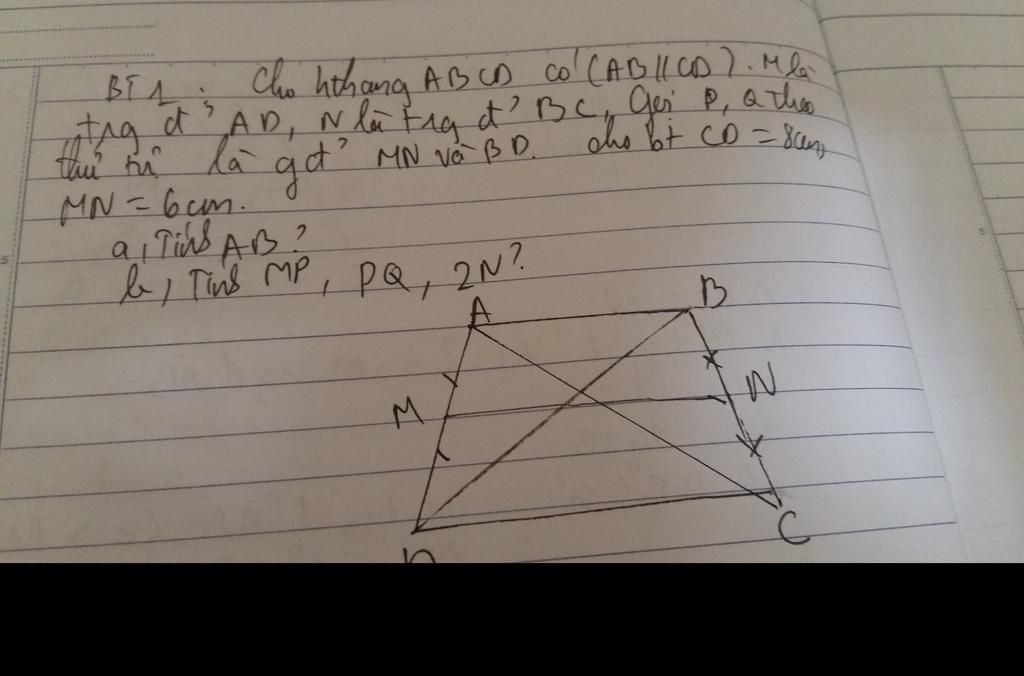 BT1. Cho hthang ABCD có (AB//CD). M là
trg đ' AD, N là trg đ' BC, Gọi P, Q theo
thứ tự là gđ' MN và BD. cho bt CD = 8cm,
MN = 6cm.
a, Tính AB?
b, Tính MP, PQ, 2N?
A B
M N
D C